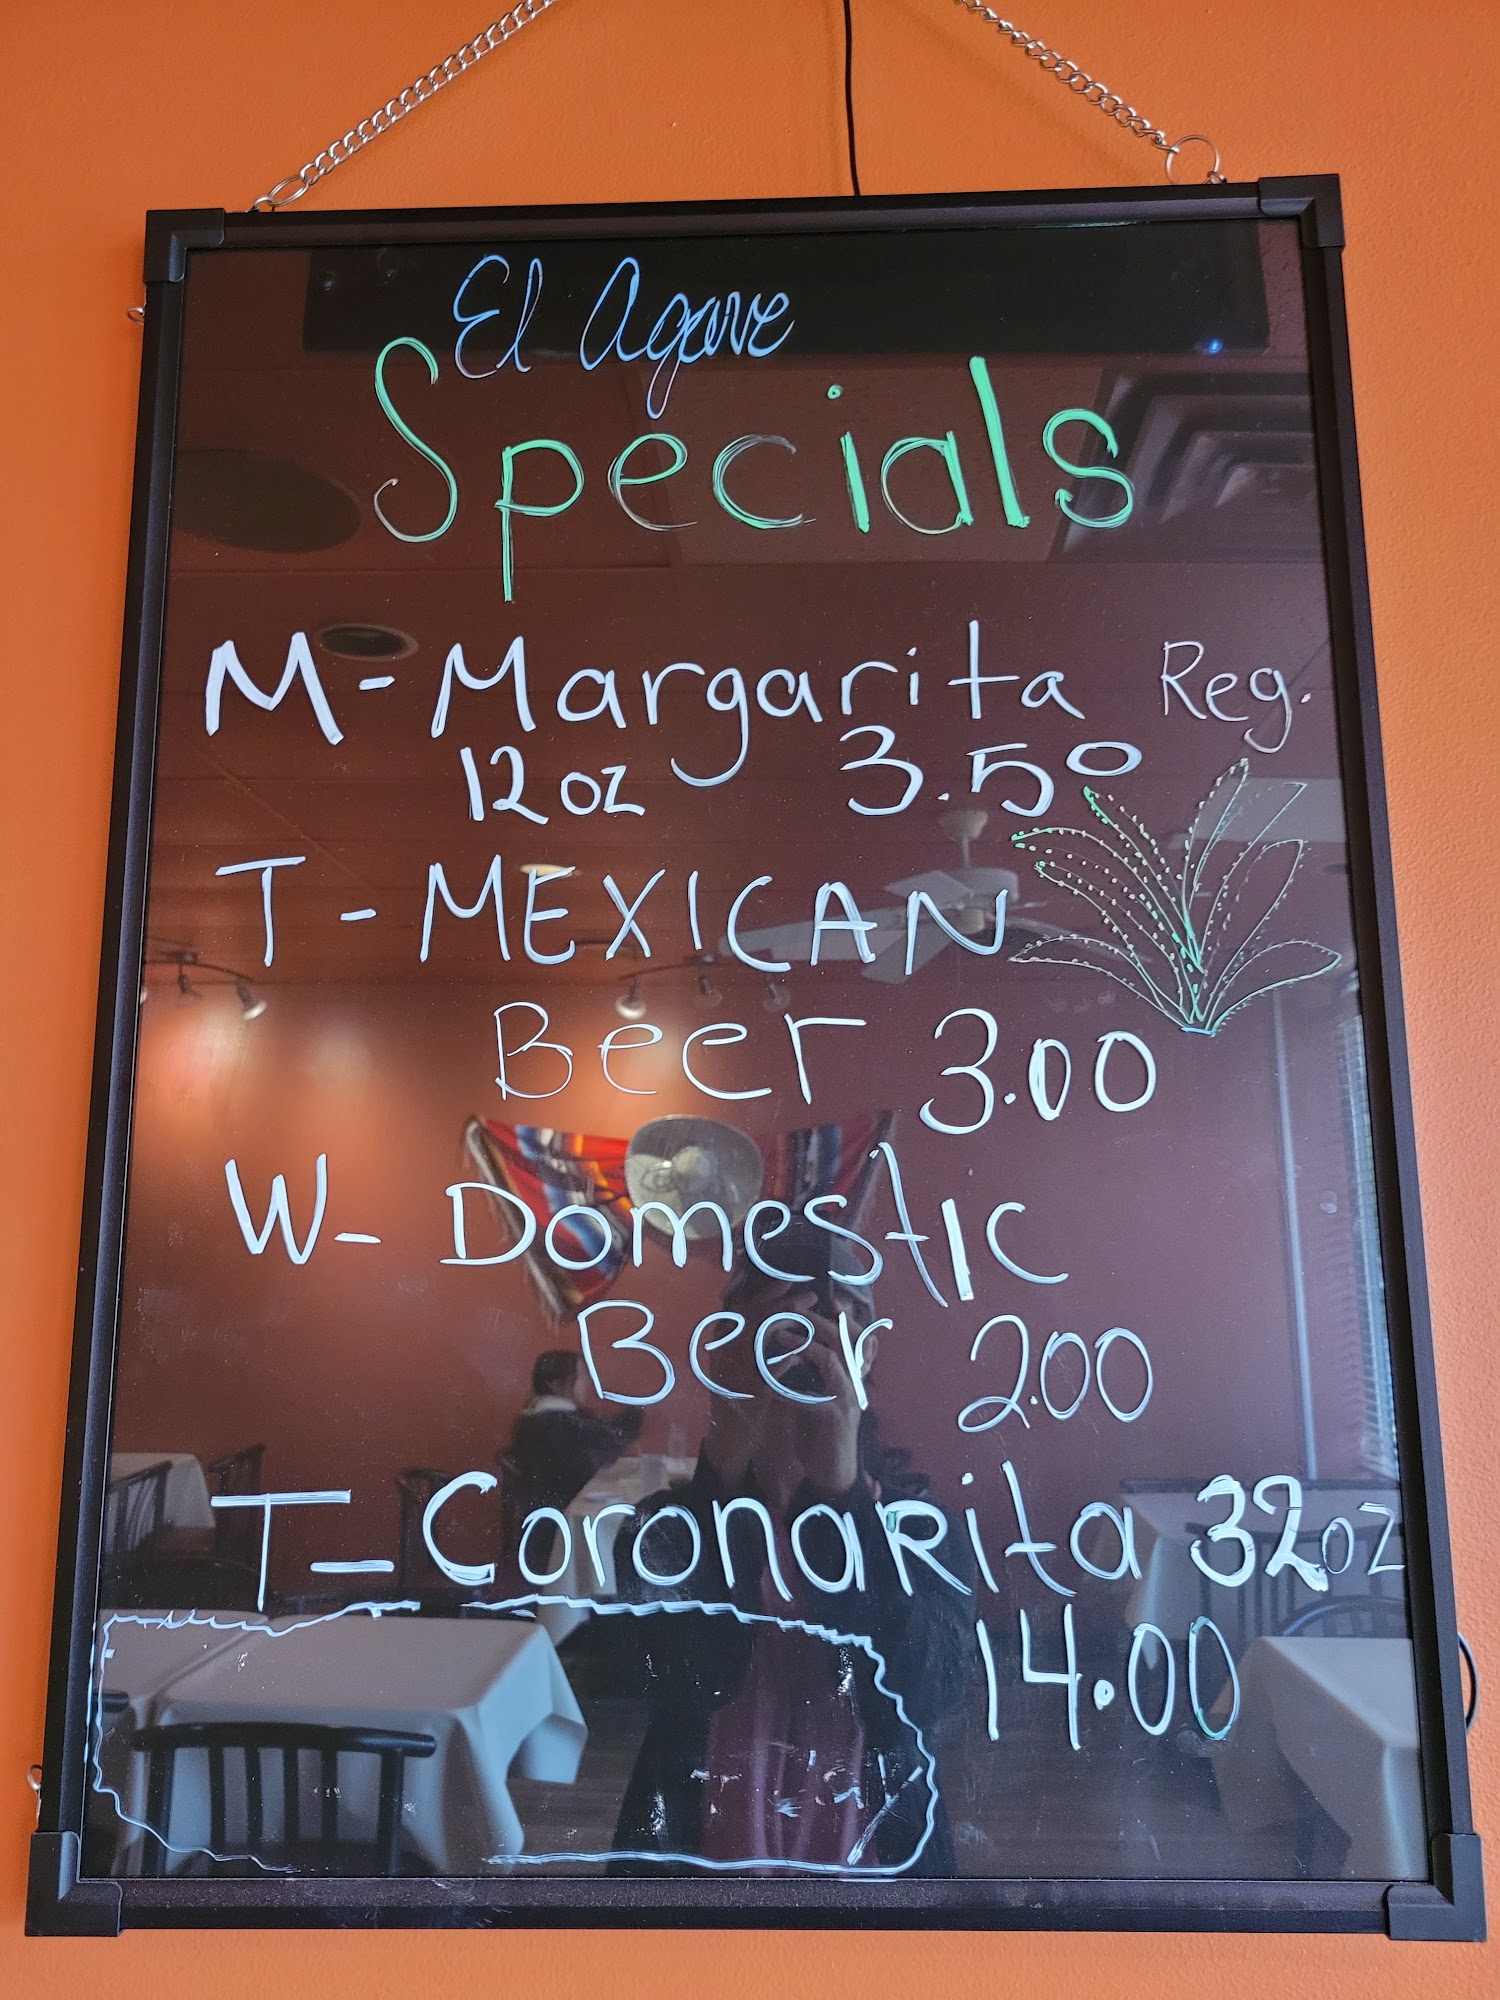 El Agave
Specials
M- Margarita Reg.
12oz 3.50
T- MEXICAN
Beer 3.00
W- Domestic
Beer 2.00
T- Coronarita 32oz
14.00